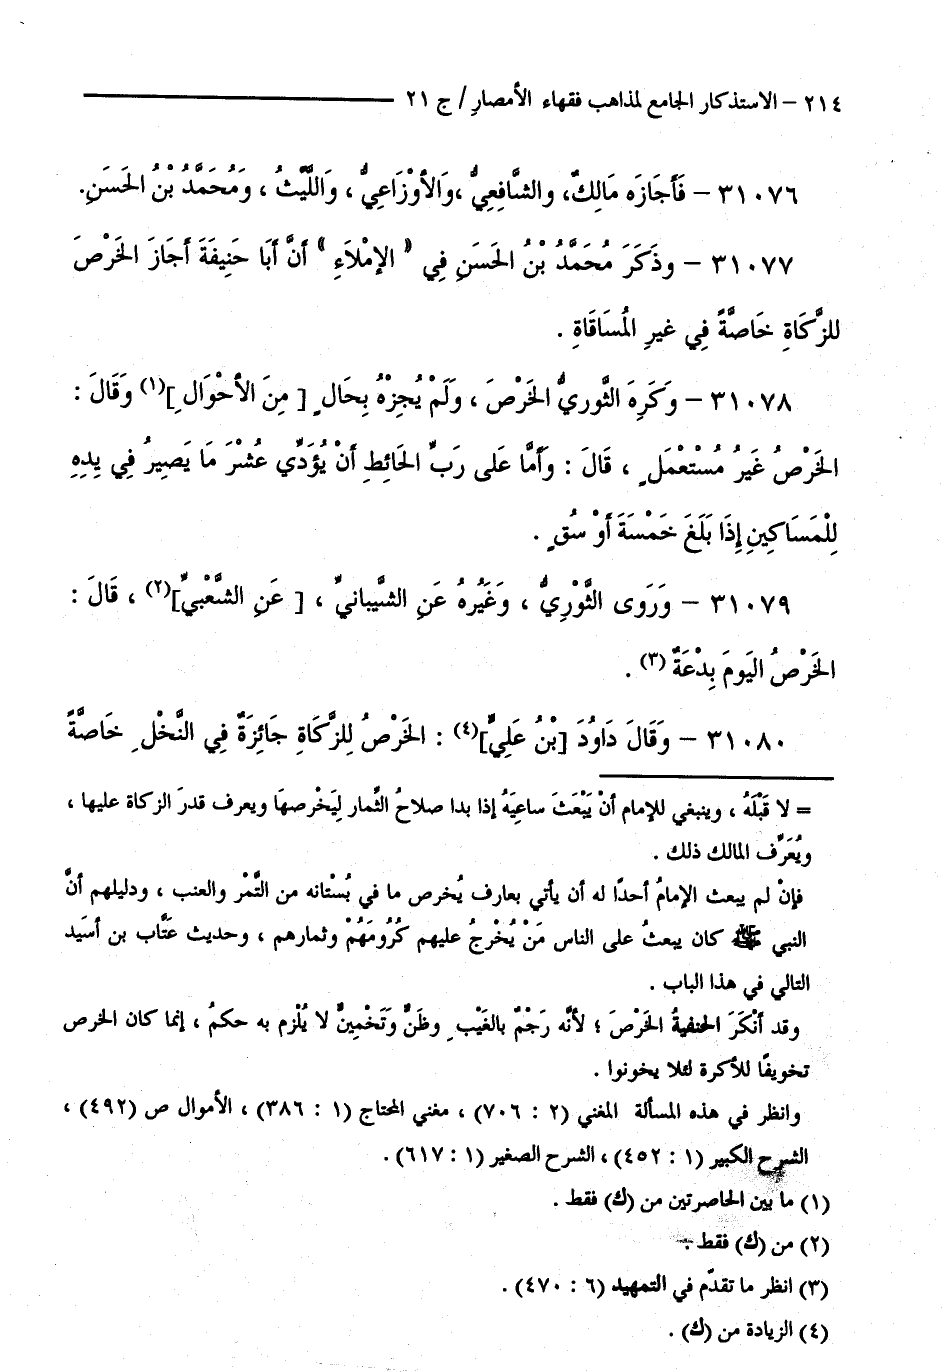 ٢١٤ – الاستذكار الجامع لمذاهب فقهاء الأمصار / ج ٢١
٣١٠٧٦ – فَأَجَازَه مَالِكٌ، والشَّافِعِيُّ، وَالأَوْزَاعِيُّ ، وَاللَّيْثُ ، وَمُحَمَّدُ بْنُ الحَسَنِ.
٣١٠٧٧ – وذَكَرَ مُحَمَّدُ بْنُ الحَسَنِ فِي « الإِمْلَاءِ » أَنَّ أَبَا حَنِيفَةَ أَجَازَ الخَرْصَ
للزَّكَاةِ خَاصَّةً فِي غيرِ المُسَاقَاةِ .
٣١٠٧٨ – وَكَرِهَ الثَّورِيُّ الخَرْصَ ، ولَمْ يُجِزْهُ بِحَالٍ [ مِنَ الأَحْوَالِ ](١) وَقَالَ :
الخَرْصُ غَيرُ مُسْتَعْمَلٍ ، قَالَ : وَأَمَّا عَلى رَبِّ الحَائطِ أَنْ يُؤَدِّي عُشْرَ مَا يَصِيرُ فِي يدِهِ
لِلْمَسَاكِينِ إِذَا بَلَغَ خَمْسَةَ أَوْ سُقٍ .
٣١٠٧٩ – وَرَوَى الثَّوْرِيُّ ، وَغَيْرُهُ عَنِ الشَّيبانيِّ ، [ عَنِ الشَّعْبيِّ](٢) ، قَالَ :
الخَرْصُ اليَومَ بِدْعَةٌ (٣) .
٣١٠٨٠ – وَقَالَ دَاوُدَ [بْنُ عَلِيٍّ](٤) : الخَرْصُ لِلزَّكَاةِ جَائِزَةٌ فِي النَّخْلِ خَاصَّةً
= لا قَبْلَهُ ، وينبغي للإمام أنْ يَبْعَثَ ساعِيَهُ إذا بدا صلاحُ الثَّمار لِيَخْرصهَا ويعرف قدرَ الزكاة عليها ،
ويُعَرِّف المالك ذلك .
فإنْ لم يبعث الإمامُ أحدًا له أن يأتي بعارف يُخرص ما في بُسْتانه من التَّمْر والعنب ، ودليلهم أنَّ
النبي ﷺ كان يبعثُ على الناس مَنْ يُخْرجُ عليهم كُرُومَهُمْ وثمارهم ، وحديث عتَّاب بن أسَيد
التالي في هذا الباب .
وقد أنْكَرَ الحنفيةُ الخَرْصَ ؛ لأنَّه رَجْمٌ بالغَيْبِ وظَنٌّ وَتَخْمِينٌ لا يُلْزم به حكمُ ، إنما كان الخرص
تخويفًا للأكرة لئلا يخونوا .
وانظر في هذه المسألة المغني (٢ : ٧٠٦) ، مغني المحتاج (١ : ٣٨٦) ، الأموال ص (٤٩٢) ،
الشرح الكبير (١ : ٤٥٢) ، الشرح الصغير (١ : ٦١٧) .
(١) ما بين الحاصرتين من (ك) فقط .
(٢) من (ك) فقط .
(٣) انظر ما تقدّم في التمهيد (٦ : ٤٧٠) .
(٤) الزيادة من (ك) .